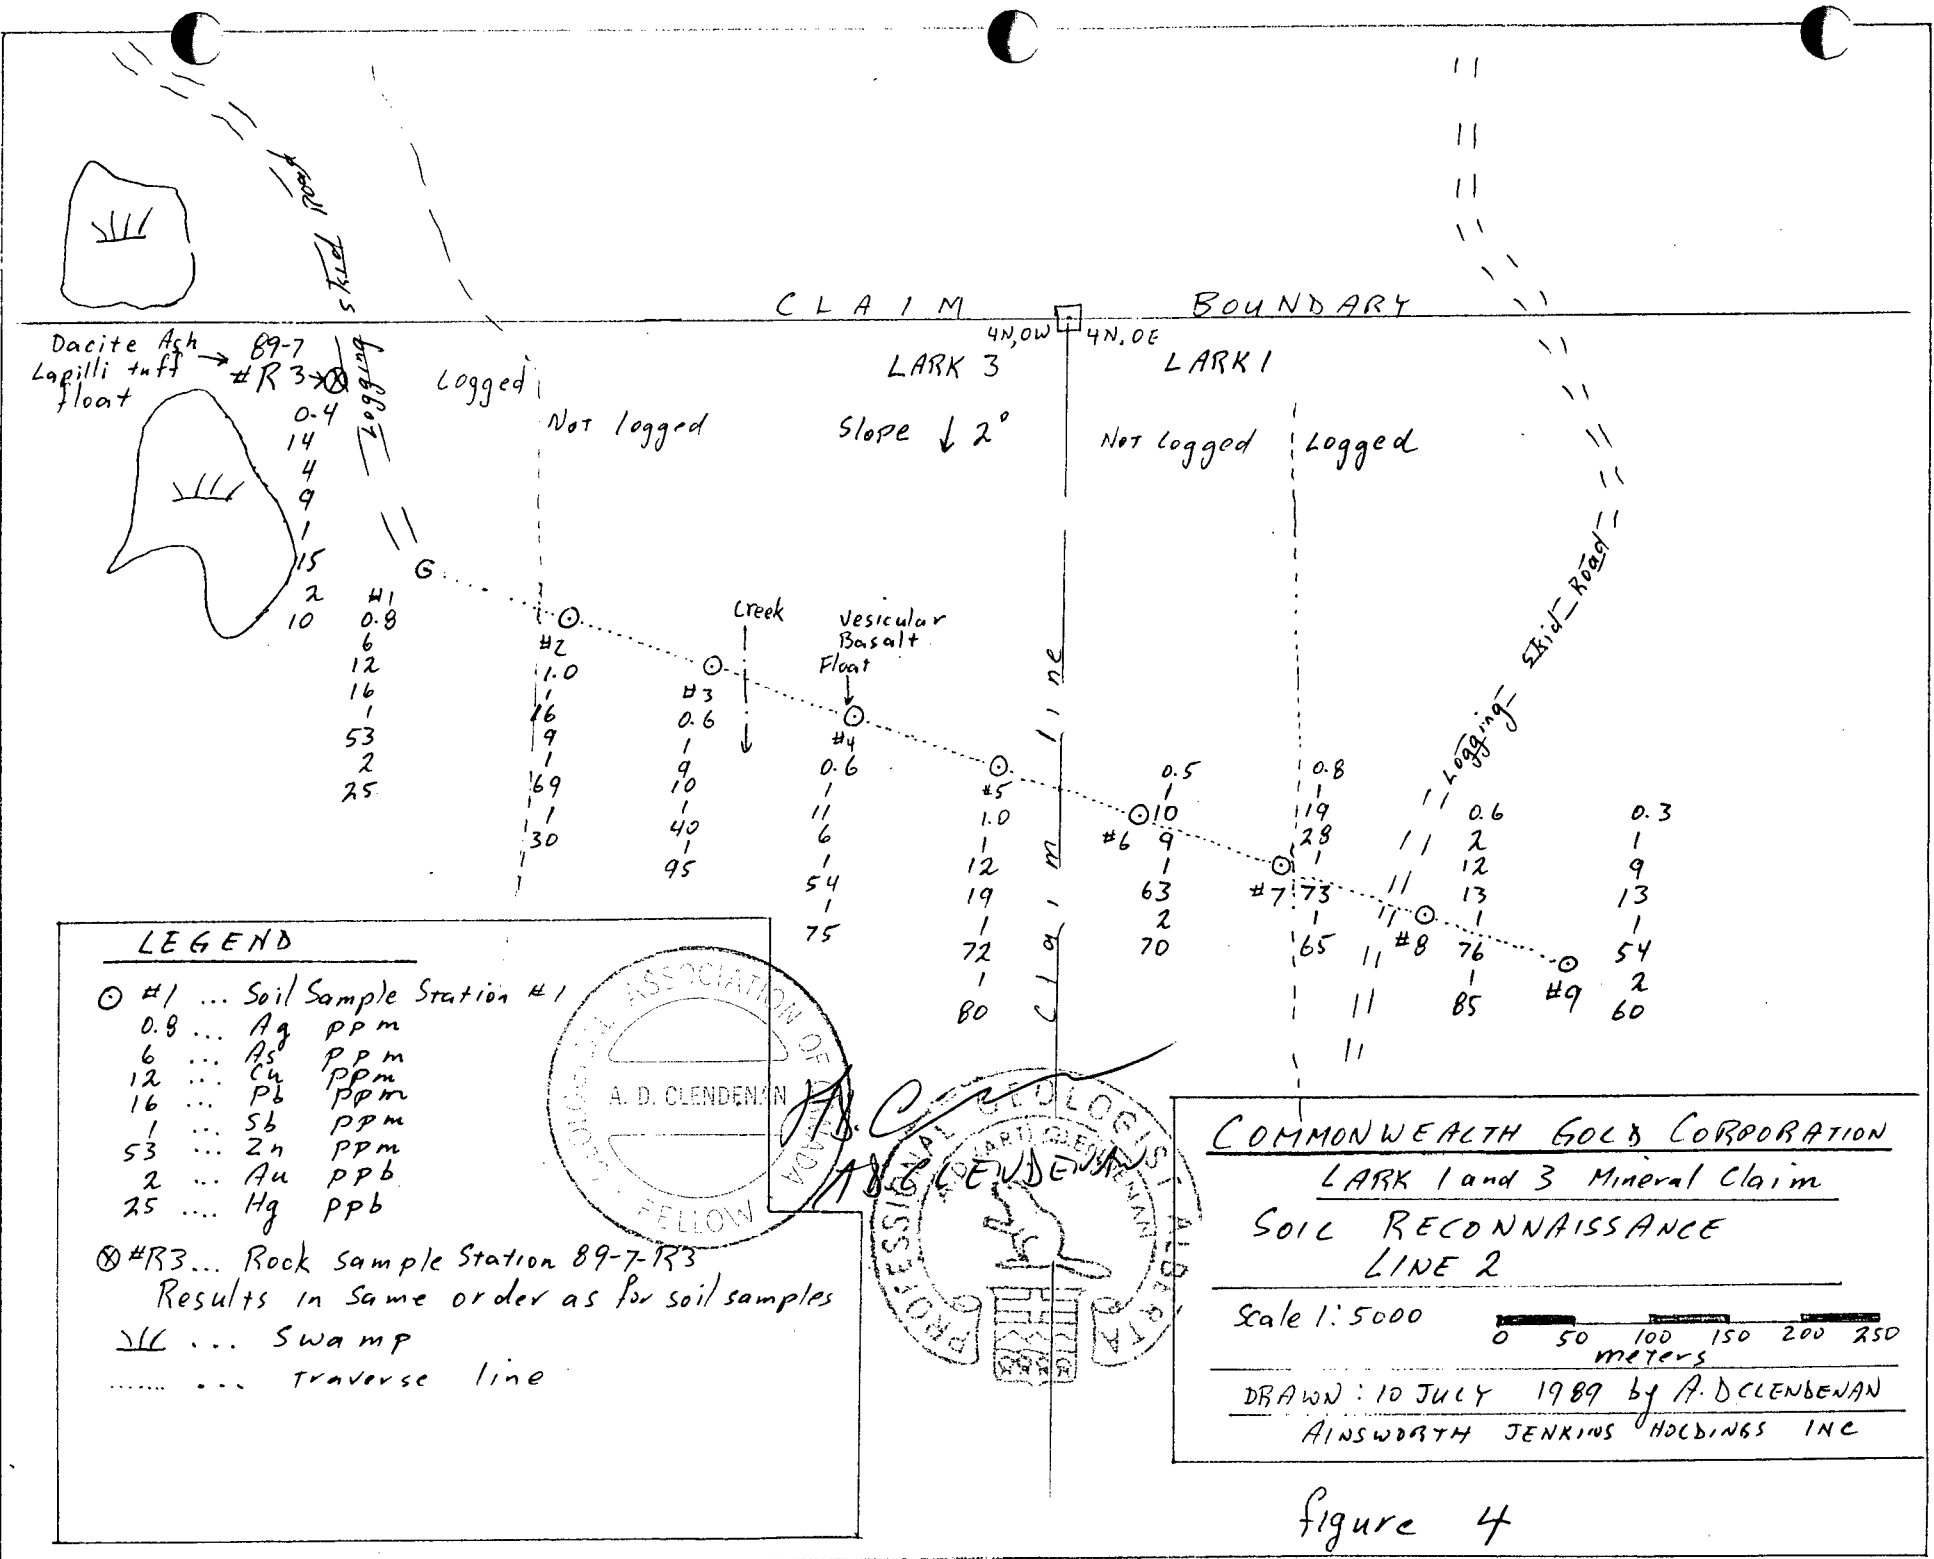 CLAIM BOUNDARY
4N,0W 4N.0E
LARK 3
LARK 1
Logging Skid Road
Dacite Ash
Lapilli tuff
float
89-7
#R 3
0.4
14
4
9
1
15
2
10
Logged
Not logged
Slope ↓ 2°
Not Logged
Logged
Logging Skid Road
#1
0.8
6
12
16
1
53
2
25
#2
1.0
1
16
9
1
69
1
30
#3
0.6
1
9
10
1
40
1
95
Creek
Vesicular
Basalt
Float
#4
0.6
1
11
6
1
54
1
75
#5
1.0
1
12
19
1
72
1
80
Claim line
#6
0.5
1
10
9
1
63
2
70
#7
0.8
1
19
28
1
73
1
65
#8
0.6
2
12
13
1
76
1
85
#9
0.3
1
9
13
1
54
2
60
LEGEND
⊙ #1 ... Soil Sample Station #1
0.8 ... Ag ppm
6 ... As ppm
12 ... Cu ppm
16 ... Pb ppm
1 ... Sb ppm
53 ... Zn ppm
2 ... Au ppb
25 .... Hg ppb
⊗ #R3... Rock sample Station 89-7-R3
Results in same order as for soil samples
... Swamp
....... ... Traverse line
ASSOCIATION OF CANADA
A. D. CLENDENAN
FELLOW
A.D. CLENDENAN
PROFESSIONAL GEOLOGIST ALBERTA
COMMONWEALTH GOLD CORPORATION
LARK 1 and 3 Mineral Claim
SOIL RECONNAISSANCE
LINE 2
Scale 1:5000
0 50 100 150 200 250
meters
DRAWN : 10 JULY 1989 by A.D CLENDENAN
AINSWORTH JENKINS HOLDINGS INC
figure 4